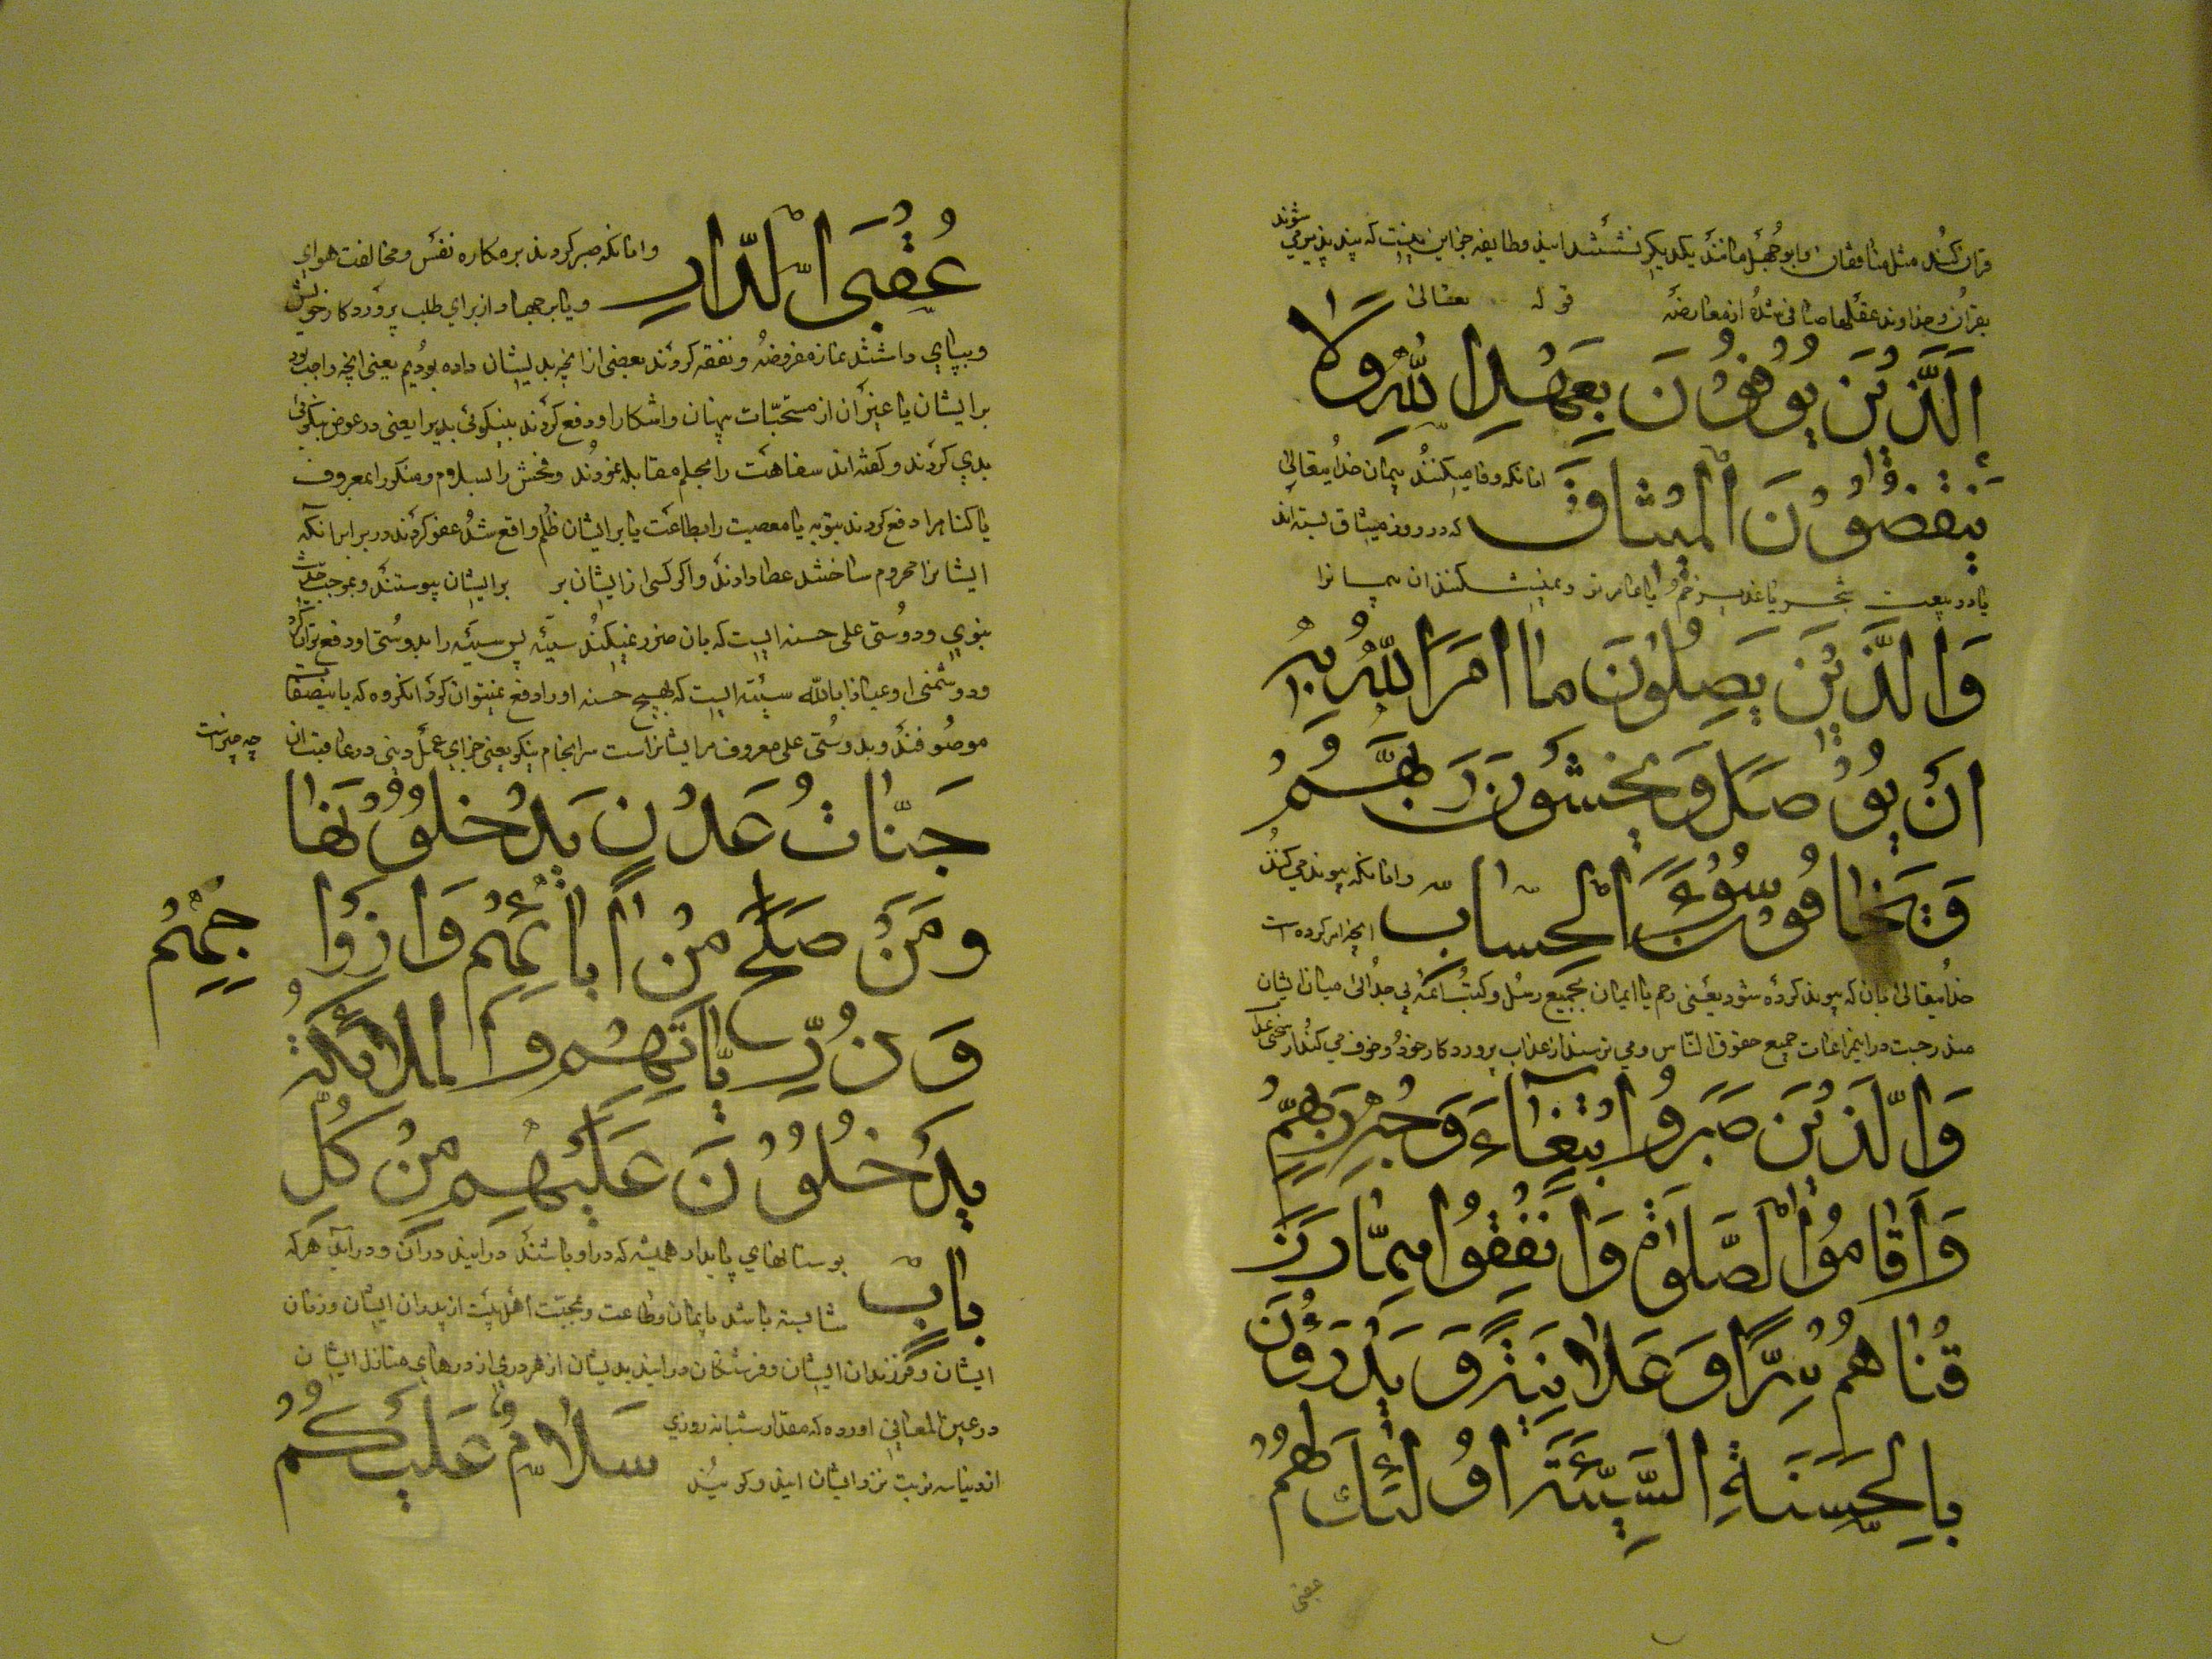 قران کنند مثل منافقان و ابوجهل مانند یکدیکر نشستند اینطایفه جز این نیست که پند پذیر می شوند
بقران خداوند عقلها صافی شده از معارضه قوله تعالی
اَلَّذينَ يُوفُونَ بِعَهْدِ اللّٰهِ وَلا
يَنْقُضُونَ الْميثاقَ انانکه وفا میکنند پیمان خدایتعالی
که در روز میثاق بسته اند
یا در بیعت شجره یا غدیر خم و نمیشکنند ان پیمانرا
وَالَّذينَ يَصِلُونَ ما اَمَرَ اللّٰهُ بِهِ
اَنْ يُوصَلَ وَيَخْشَوْنَ رَبَّهُمْ
وَيَخافُونَ سُوءَ الْحِسابِ و انانکه پیوند می کنند
انچه امر کرده است
خدایتعالی بان که پیوند کرده شود یعنی رحم یا ایمان بجمیع رسل و کتب ائمه بی جدائی میان ایشان
مندرجست در این مراعات جمیع حقوق الناس و می ترسند از عذاب پروردکار خود و خوف می کنند از سختی
وَالَّذينَ صَبَرُوا ابْتِغاءَ وَجْهِ رَبِّهِمْ
وَاَقامُوا الصَّلوٰةَ وَاَنْفَقُوا مِمّا رَزَ
قْناهُمْ سِرًّا وَعَلانِيَةً وَيَدْرَؤُنَ
بِالْحَسَنَةِ السَّيِّئَةَ اُولٰئِكَ لَهُمْ
عُقْبَى الدّارِ و انانکه صبر کردند بر مکاره نفس و مخالفت هوای
و یا بر جهاد از برای طلب پروردکار خویش
و بپای داشتند نماز مفروضه و نفقه کردند بعضی از انچه بدیشان داده بودیم یعنی انچه واجب بود
بر ایشان یا غیر ان از مستحبات پنهان و اشکارا و دفع کردند بنیکوئی بدیرا یعنی در عوض نیکوئی
بدی کردند و کفته اند سفاهت را بحلم مقابله نمودند و فحش را بسلام و منکر را بمعروف
یا کناهرا دفع کردند بتوبه یا معصیت را بطاعت یا بر ایشان ظلم واقع شد عفو کردند در برابر انکه
ایشانرا محروم ساختند عطا دادند و اکر کسی از ایشان بر برایشان پیوستند و بموجب حدیث
نبوی و دوستی علی حسنه ایست که بان ضرر نمیکند سیئه پس سیئه را بدوستی او دفع توان کرد
و دوشمنی او عیاذا بالله سیئته ایست که بهیچ حسنه او را دفع نمیتوان کرد انکروه که یا بینصفات
موصوفند و بدوستی علی معروف مر ایشانراست سرانجام نیکو یعنی جزای عمل دینی در عاقبت ان
چه چیزاست
جَنّاتُ عَدْنٍ يَدْخُلُونَها
وَمَنْ صَلَحَ مِنْ اٰبائِهِمْ وَاَزْوا
جِهِمْ
وَذُرِّيّاتِهِمْ وَالْمَلائِكَةُ
يَدْخُلُونَ عَلَيْهِمْ مِنْ كُلِّ
بابٍ بوستانهای پایدار همیشه که در او باشند در ایند در ان و در اید هرکه
شایسته باشد بایمان و طاعت و محبت اهل بیت از پدران ایشان و زنان
ایشان و فرزندان ایشان و فرشتکان در ایند بدیشان از هر دری از درهای منازل ایشان
در عین المعانی اورده که مقدار شبانه روزی
از دنیا سه نوبت نزد ایشان ایند و کویند سَلامٌ عَلَيْكُمْ